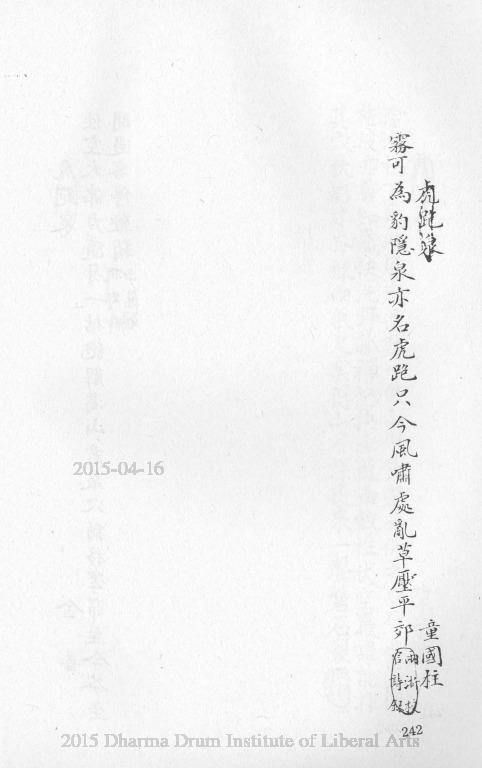 虎跑泉
童國柱
霧可為豹隱泉亦名虎跑只今風嘯處亂草壓平郊
兩浙校官詩錄
242
2015-04-16
2015 Dharma Drum Institute of Liberal Arts